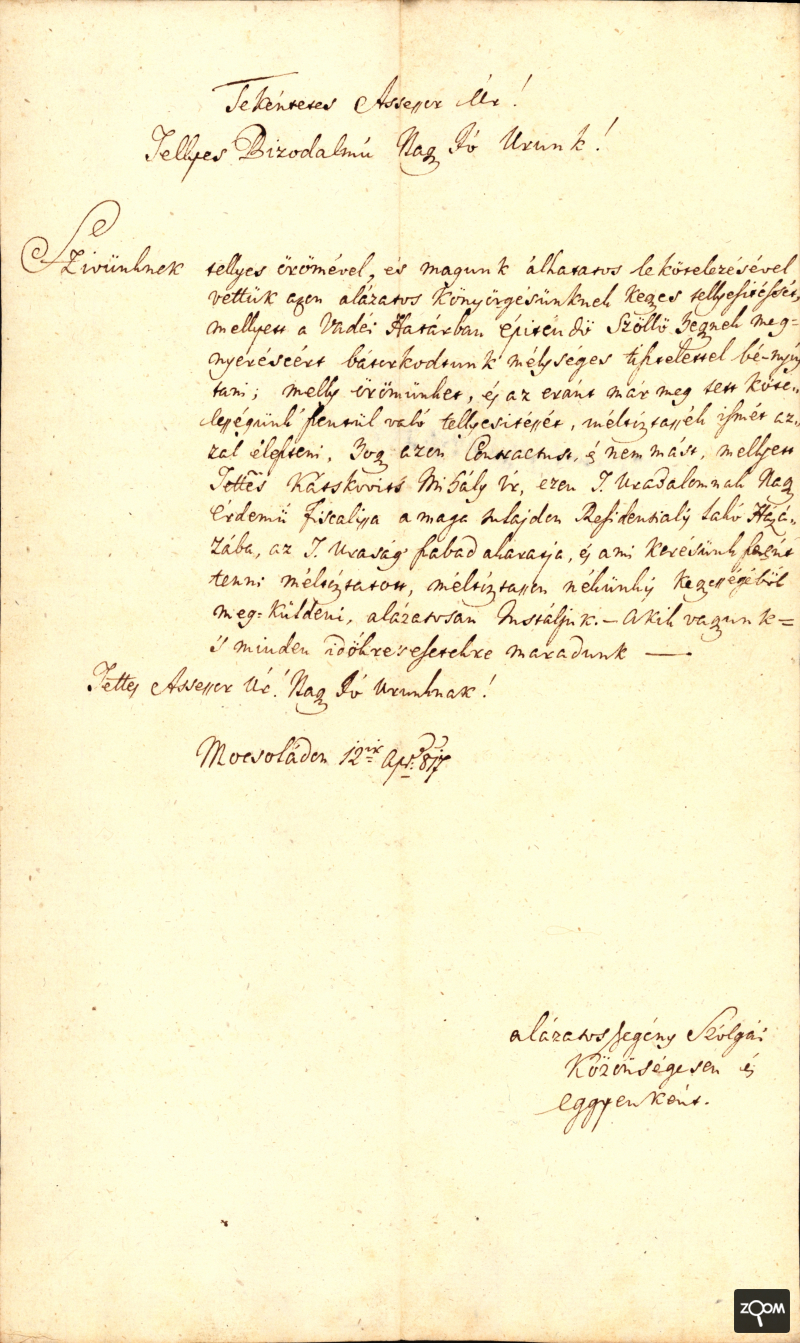 Tekéntetes Assessor Úr!
Tellyes Bizodalmú Nagy Jó Urunk!
Szivünknek tellyes örömével, és magunk álhatatos lekötelezésével
vettük azon alázatos Könyörgésünknek Kegyes tellyesittését,
mellyett a Vadéi Határban épiténdő Szöllő Hegynek meg=
nyeréséért bátorkodtunk mélységes tisztelettel bé-nyúj
tani; melly örömünket, és az eránt már meg tett köte„
lességünk szentül való tellyesitését, méltóztassék ismét az„
zal éleszteni, Hogy azon Contractust, és nem mást, mellyett
Tettes Mihály Úr, ezen T. Uradalomnak Nagy
érdemű Fiscalissa a maga tulajdon Residentialis lakó Házá„
zába, az T. Uraság szabad akaratja, és ami Kérésünk szerént
tenni méltóztatott, méltóztasson nékünk Kegyességéből
meg=küldeni, alázatosan Instáljuk. — Akik vagyunk =
is minden időkre esetekre maradunk —
Tettes Assessor Úr! Nagy Jó Urunknak!
Mocsoládon 12ik Apr. 817
alázatos szegény Szolgái
Közönségesen és
eggyenként.
ZOOM